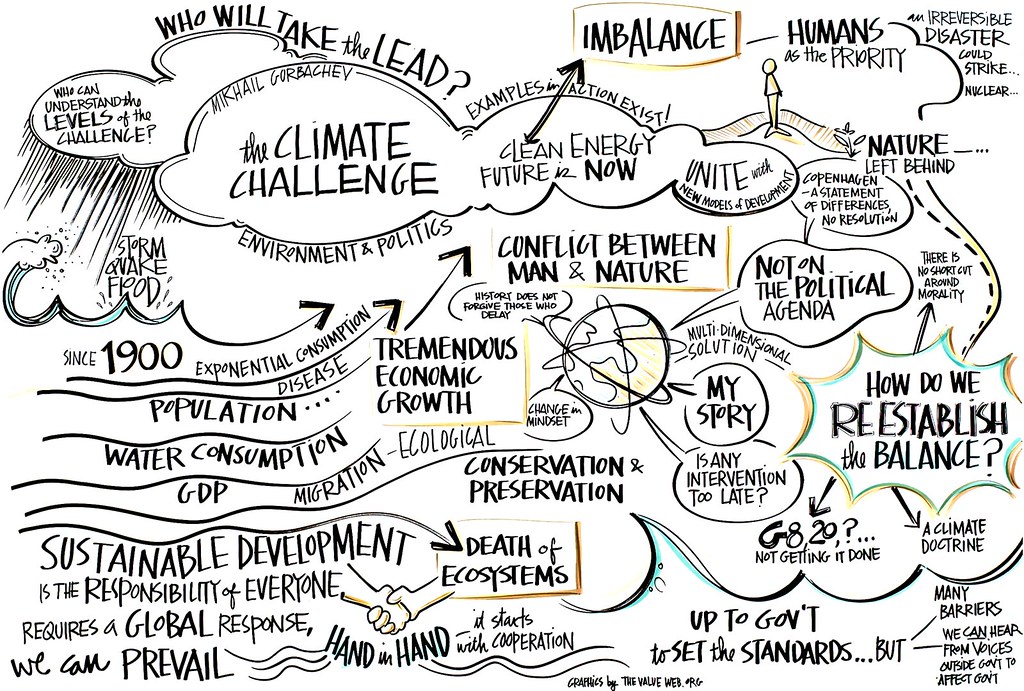 WHO WILL TAKE the LEAD?
MIKHAIL GORBACHEV
WHO CAN
UNDERSTAND the
LEVELS of the
CHALLENGE?
the CLIMATE
CHALLENGE
ENVIRONMENT & POLITICS
EXAMPLES in ACTION EXIST!
CLEAN ENERGY
FUTURE is NOW
IMBALANCE
HUMANS
as the PRIORITY
an IRREVERSIBLE
DISASTER
COULD
STRIKE...
NUCLEAR...
NATURE —...
LEFT BEHIND
UNITE with
NEW MODELS of DEVELOPMENT
COPENHAGEN
- A STATEMENT
OF DIFFERENCES,
NO RESOLUTION
STORM
QUAKE
FLOOD
CONFLICT BETWEEN
MAN & NATURE
NOT ON
THE POLITICAL
AGENDA
THERE IS
NO SHORT CUT
AROUND
MORALITY
HISTORY DOES NOT
FORGIVE THOSE WHO
DELAY
SINCE 1900
EXPONENTIAL CONSUMPTION
DISEASE
POPULATION ....
WATER CONSUMPTION
GDP
MIGRATION - ECOLOGICAL
TREMENDOUS
ECONOMIC
GROWTH
CHANGE in
MINDSET
MULTI-DIMENSIONAL
SOLUTION
MY
STORY
IS ANY
INTERVENTION
TOO LATE?
HOW DO WE
REESTABLISH
the BALANCE?
CONSERVATION &
PRESERVATION
G8,20,?...
NOT GETTING IT DONE
A CLIMATE
DOCTRINE
SUSTAINABLE DEVELOPMENT
IS THE RESPONSIBILITY of EVERYONE,
REQUIRES a GLOBAL RESPONSE,
we can PREVAIL
DEATH of
ECOSYSTEMS
HAND in HAND
it starts
with COOPERATION
UP TO GOV'T
to SET the STANDARDS...BUT
MANY
BARRIERS
WE CAN HEAR
FROM VOICES
OUTSIDE GOV'T TO
AFFECT GOV'T
GRAPHICS by THE VALUE WEB.ORG